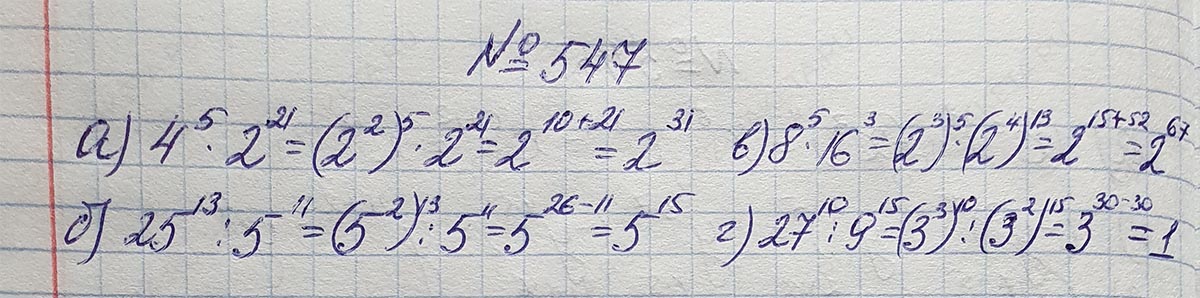 № 547
а) 4⁵ · 2²¹ = (2²)⁵ · 2²¹ = 2¹⁰⁺²¹ = 2³¹ в) 8⁵ · 16³ = (2³)⁵ · (2⁴)¹³ = 2¹⁵⁺⁵² = 2⁶⁷
б) 25¹³ : 5¹¹ = (5²)¹³ : 5¹¹ = 5²⁶⁻¹¹ = 5¹⁵ г) 27¹⁰ : 9¹⁵ = (3³)¹⁰ : (3²)¹⁵ = 3³⁰⁻³⁰ = 1